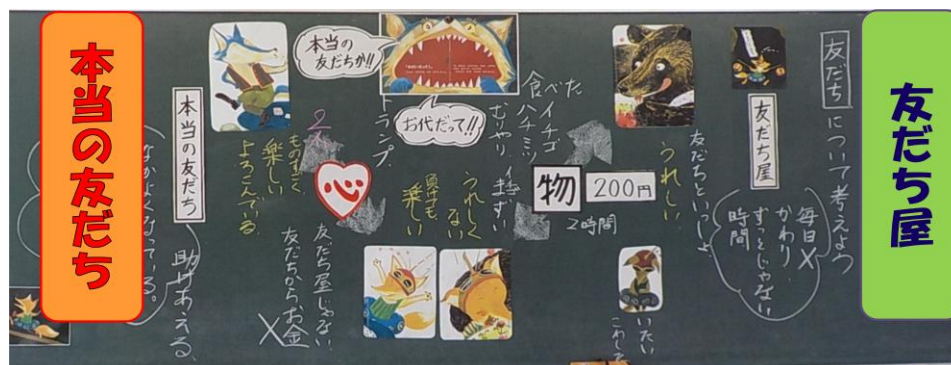 友だち屋
友だちについて考えよう
友だち屋
毎日X
かわり
ずっとじゃない
時間
友だちといっしょ
うれしい
いたい
こわした
物
200円
2時間
食べた
イチゴ
ハチミツ
むりやり
まずい
うれしく
ない
負けても
楽しい
本当の
友だちか!!
お代だって!!
トランプ
心
ものすごく
楽しい
よろこんでいる
友だち屋じゃない
友だちからお金
X
本当の友だち
助けあえる
なかよくなっている。
本当の友だち